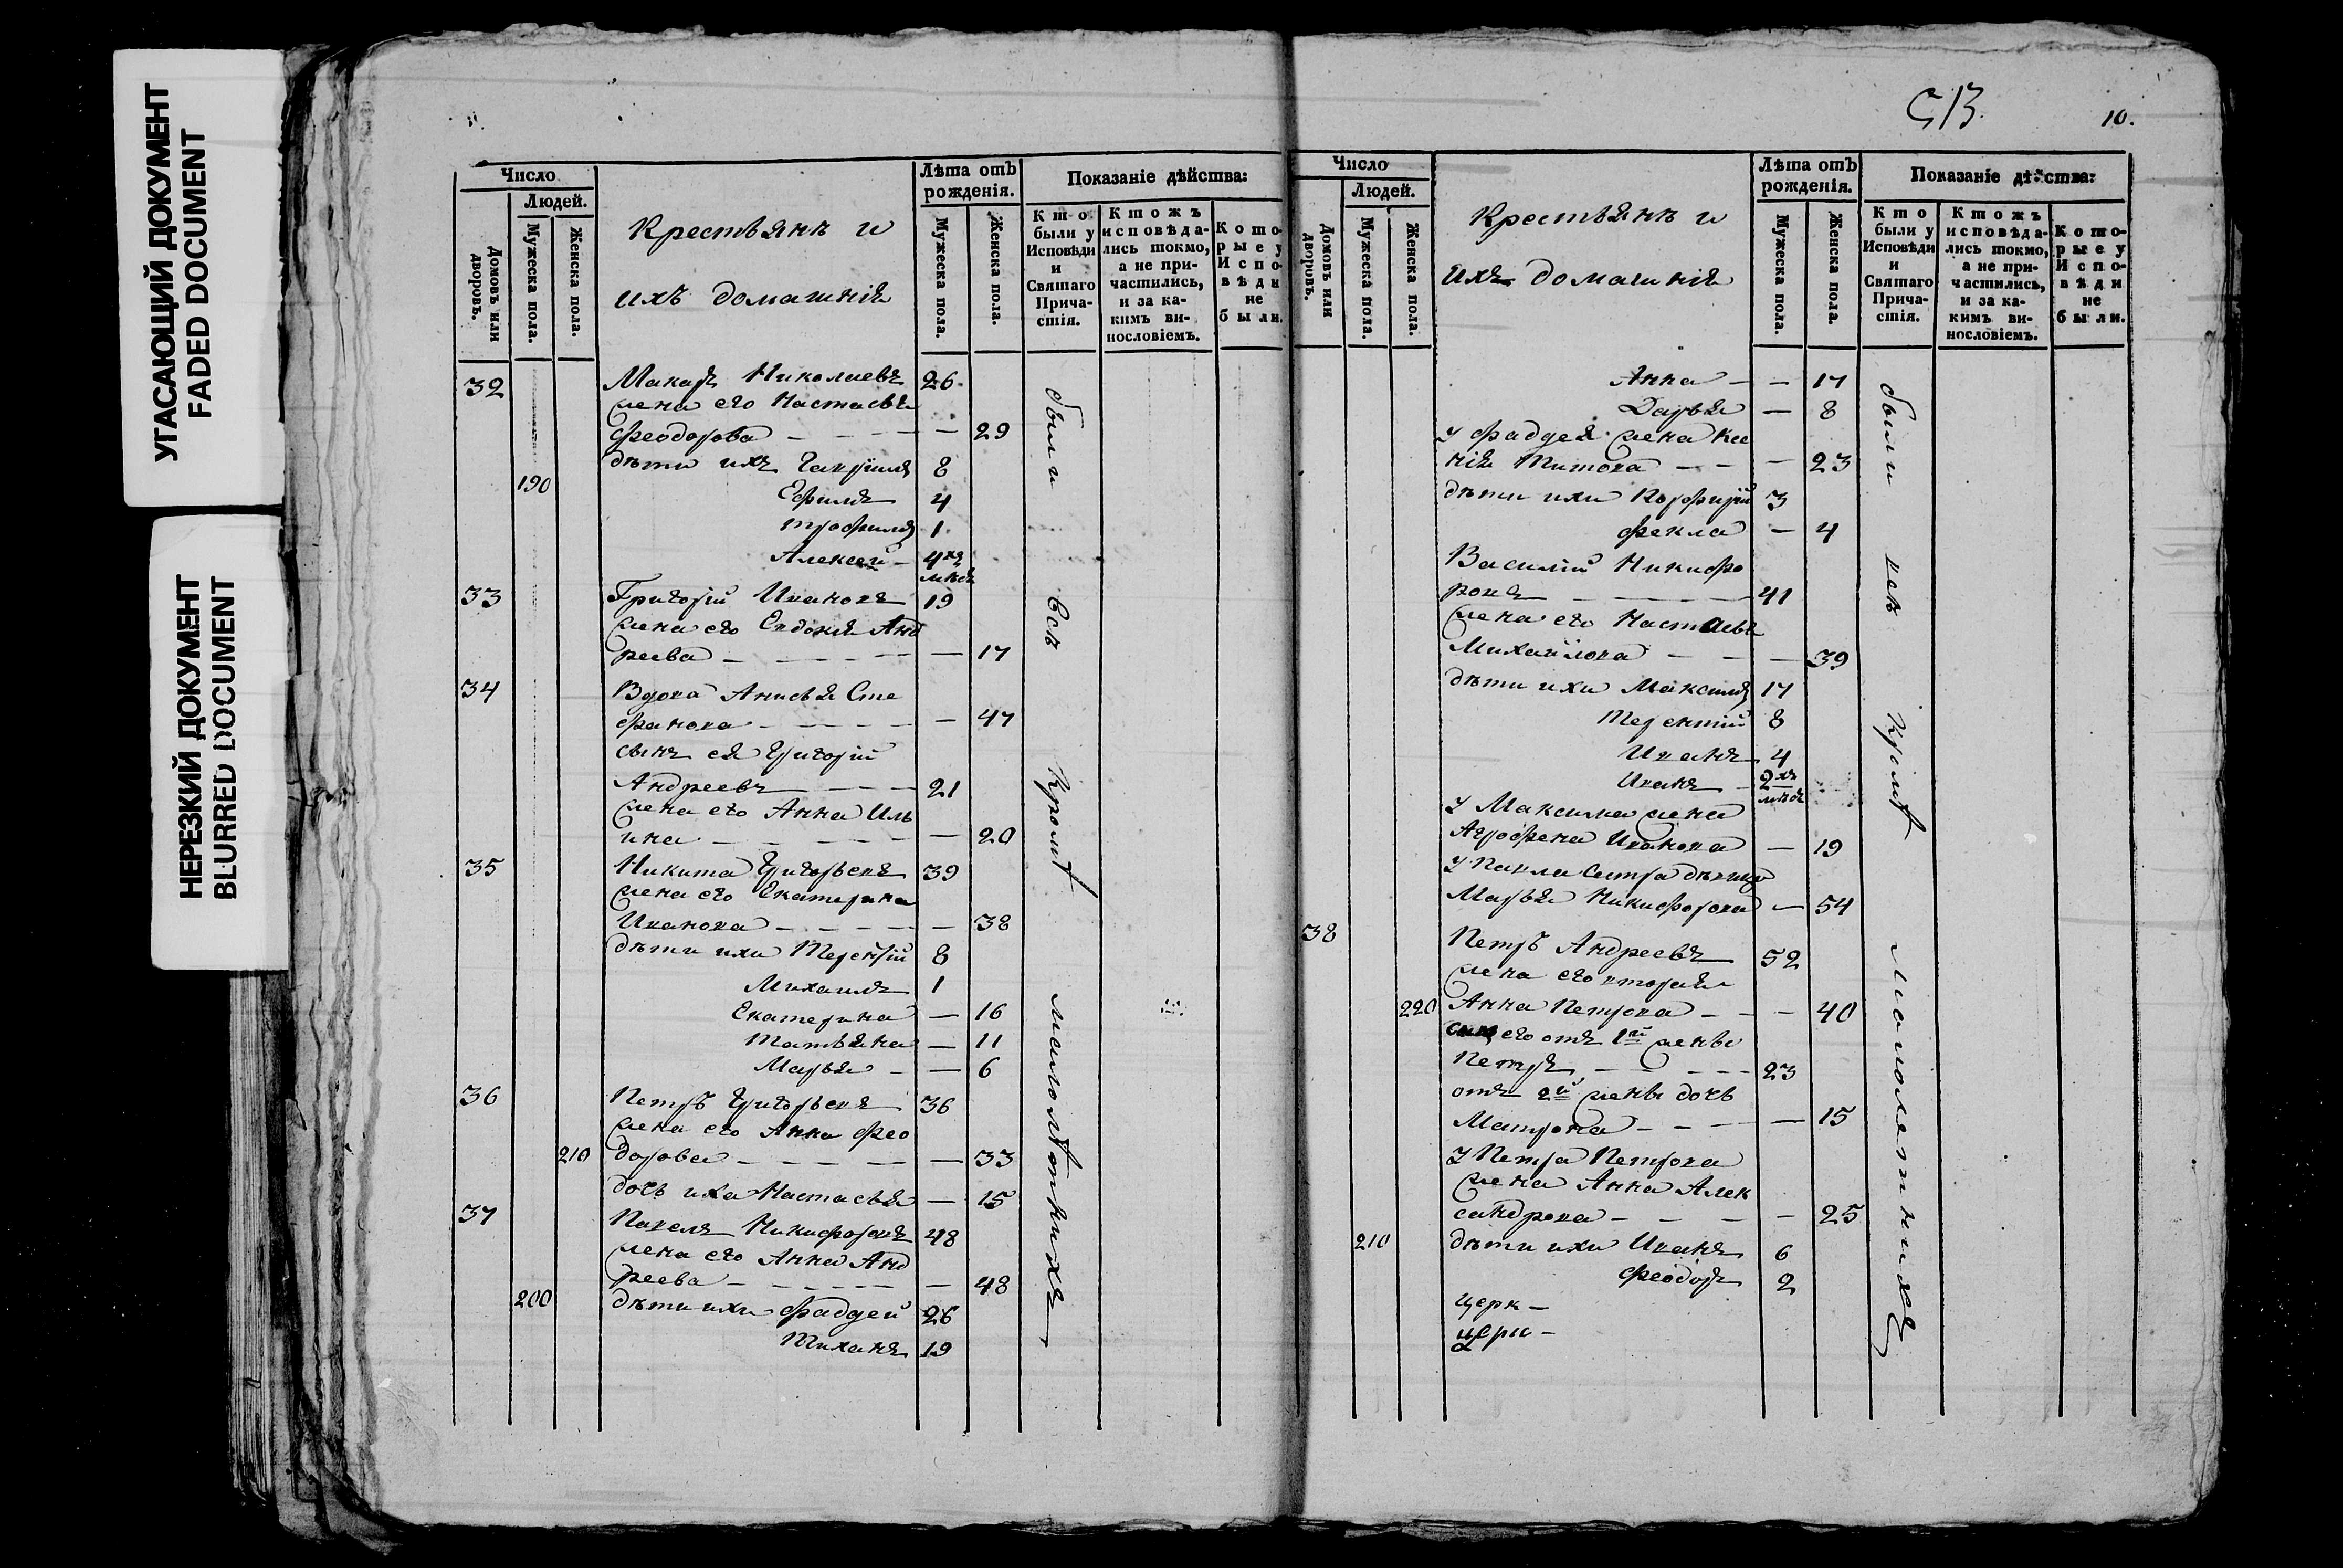 УГАСАЮЩИЙ ДОКУМЕНТ
FADED DOCUMENT
НЕРЕЗКИЙ ДОКУМЕНТ
BLURRED DOCUMENT
Число
Людей.
Домовъ или дворовъ.
Мужеска пола.
Женска пола.
Крестьянъ и
ихъ домашнія
Лѣта отъ рожденія.
Мужеска пола.
Женска пола.
Показаніе дѣйства:
Кто были у Исповѣди и Святаго Причастія.
Ктожъ исповѣдались токмо, а не причастились, и за какимъ винословіемъ.
Которые у Исповѣди не были.
32 Макаръ Николаевъ 26
жена его Настасья
Феодорова — — 29
дѣти ихъ Гавріилъ 8
190 Ефимъ 4
Трофимъ 1
Алексей — 4хъ мѣсъ
33 Григорій Ивановъ 19
жена его Евдокія Анд
реева — — 17
34 Вдова Анисья Сте
фанова — — 47
сынъ ея Григорій
Андреевъ — 21
жена его Анна Иль
ина — — 20
35 Никита Григорьевъ 39
жена его Екатерина
Иванова — — 38
дѣти ихи Терентій 8
Михаилъ 1
Екатерина — 16
Татьяна — 11
Марья — — 6
36 Петръ Григорьевъ 36
жена его Анна Фео
210 дорова — — 33
дочь иха Настасья — 15
37 Павелъ Никифоровъ 48
жена его Анна Анд
реева — — 48
200 дѣти ихи Фаддей 26
Тиханъ 19
были всѣ кромѣ малолѣтнихъ
513.
10.
Число
Людей.
Домовъ или дворовъ.
Мужеска пола.
Женска пола.
Крестьянъ и
ихъ домашнія
Лѣта отъ рожденія.
Мужеска пола.
Женска пола.
Показаніе дѣйства:
Кто были у Исповѣди и Святаго Причастія.
Ктожъ исповѣдались токмо, а не причастились, и за какимъ винословіемъ.
Которые у Исповѣди не были.
Анна — — 17
Дарья — 8
у Фаддея жена Ксе
нія Титова — — 23
дѣти ихи Порфирій 3
Фекла — 4
Василій Никифо
ровъ — 41
жена его Настасья
Михайлова — — 39
дѣти ихи Максимъ 17
Терентій 8
Иванъ 4
Иванъ — 2хъ мѣсъ
у Максима жена
Агрофена Иванова — 19
у Павла сестра дѣвица
Марья Никифорова — 54
38 Петръ Андреевъ 52
жена его вторая
220 Анна Петрова — — 40
сынъ его отъ 1й жены
Петръ — 23
отъ 2й жены дочь
Матрона — — 15
у Петра Петрова
жена Анна Алек
сандрова — — 25
210 дѣти ихи Иванъ 6
Феодоръ 2
церк —
церк —
были всѣ кромѣ малолетнихъ